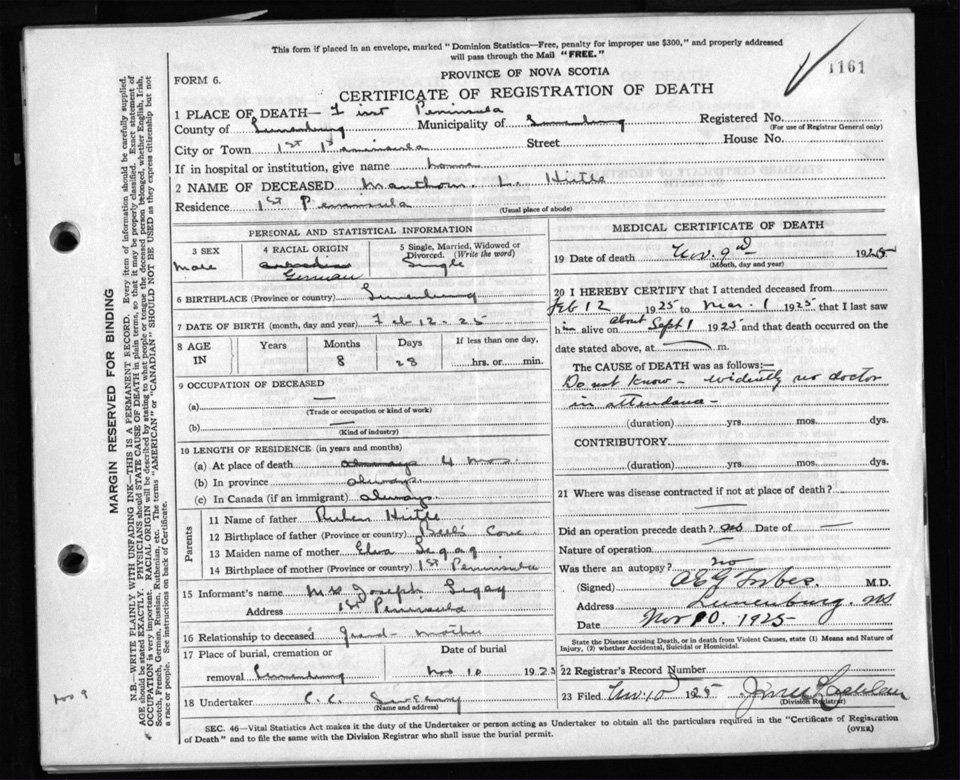 This form if placed in an envelope, marked "Dominion Statistics—Free, penalty for improper use $300," and properly addressed
will pass through the Mail "FREE."
1161
PROVINCE OF NOVA SCOTIA
FORM 6.
CERTIFICATE OF REGISTRATION OF DEATH
1 PLACE OF DEATH— First Peninsula
County of Lunenburg Municipality of Lunenburg Registered No.
(For use of Registrar General only)
City or Town 1st Peninsula Street House No.
If in hospital or institution, give name home
2 NAME OF DECEASED L. Hirtle
Residence 1st Peninsula
(Usual place of abode)
PERSONAL AND STATISTICAL INFORMATION
3 SEX 4 RACIAL ORIGIN 5 Single, Married, Widowed or
Divorced. (Write the word)
Male German Single
6 BIRTHPLACE (Province or country) Lunenburg
7 DATE OF BIRTH (month, day and year) Feb 12 - 25
8 AGE IN Years Months Days If less than one day,
8 28 hrs. or min.
9 OCCUPATION OF DECEASED
(a) —
(Trade or occupation or kind of work)
(b) —
(Kind of industry)
10 LENGTH OF RESIDENCE (in years and months)
(a) At place of death always 4 mos.
(b) In province always
(c) In Canada (if an immigrant) always
Parents
11 Name of father Ruben Hirtle
12 Birthplace of father (Province or country) Cove
13 Maiden name of mother
14 Birthplace of mother (Province or country) 1st Peninsula
15 Informant's name Mrs Joseph
Address 1st Peninsula
16 Relationship to deceased Grand-mother
17 Place of burial, cremation or Date of burial
removal Lunenburg Nov 10 1925
18 Undertaker C. C.
(Name and address)
MEDICAL CERTIFICATE OF DEATH
19 Date of death Nov. 9 1925
(Month, day and year)
20 I HEREBY CERTIFY that I attended deceased from
Feb 12 1925 to Mar. 1 1925 that I last saw
him alive on about Sept 1 1925 and that death occurred on the
date stated above, at — m.
The CAUSE of DEATH was as follows:—
Do not know - evidently no doctor
in attendance -
(duration) yrs. mos. dys.
CONTRIBUTORY
(duration) yrs. mos. dys.
21 Where was disease contracted if not at place of death?
—
Did an operation precede death? no Date of —
Nature of operation —
Was there an autopsy? no
(Signed) Forbes M.D.
Address Lunenburg. NS
Date Nov 10. 1925-
State the Disease causing Death, or in death from Violent Causes, state (1) Means and Nature of
Injury, (2) whether Accidental, Suicidal or Homicidal.
22 Registrar's Record Number
23 Filed Nov. 10 1925
(Division Registrar)
SEC. 46—Vital Statistics Act makes it the duty of the Undertaker or person acting as Undertaker to obtain all the particulars required in the "Certificate of Registration
of Death" and to file the same with the Division Registrar who shall issue the burial permit.
(OVER)
MARGIN RESERVED FOR BINDING
N.B.—WRITE PLAINLY WITH UNFADING INK—THIS IS A PERMANENT RECORD. Every item of information should be carefully supplied.
AGE should be stated EXACTLY. PHYSICIANS should STATE CAUSE OF DEATH in plain terms, so that it may be properly classified. Exact statement of
OCCUPATION is very important. RACIAL ORIGIN will be described by stating to what people or tongue the deceased person belonged, whether English, Irish,
Scotch, French, German, Russian, Ruthenian, etc. The terms "AMERICAN" or "CANADIAN" SHOULD NOT BE USED as they express citizenship but not
a race or people. See instructions on back of Certificate.
Nov 9